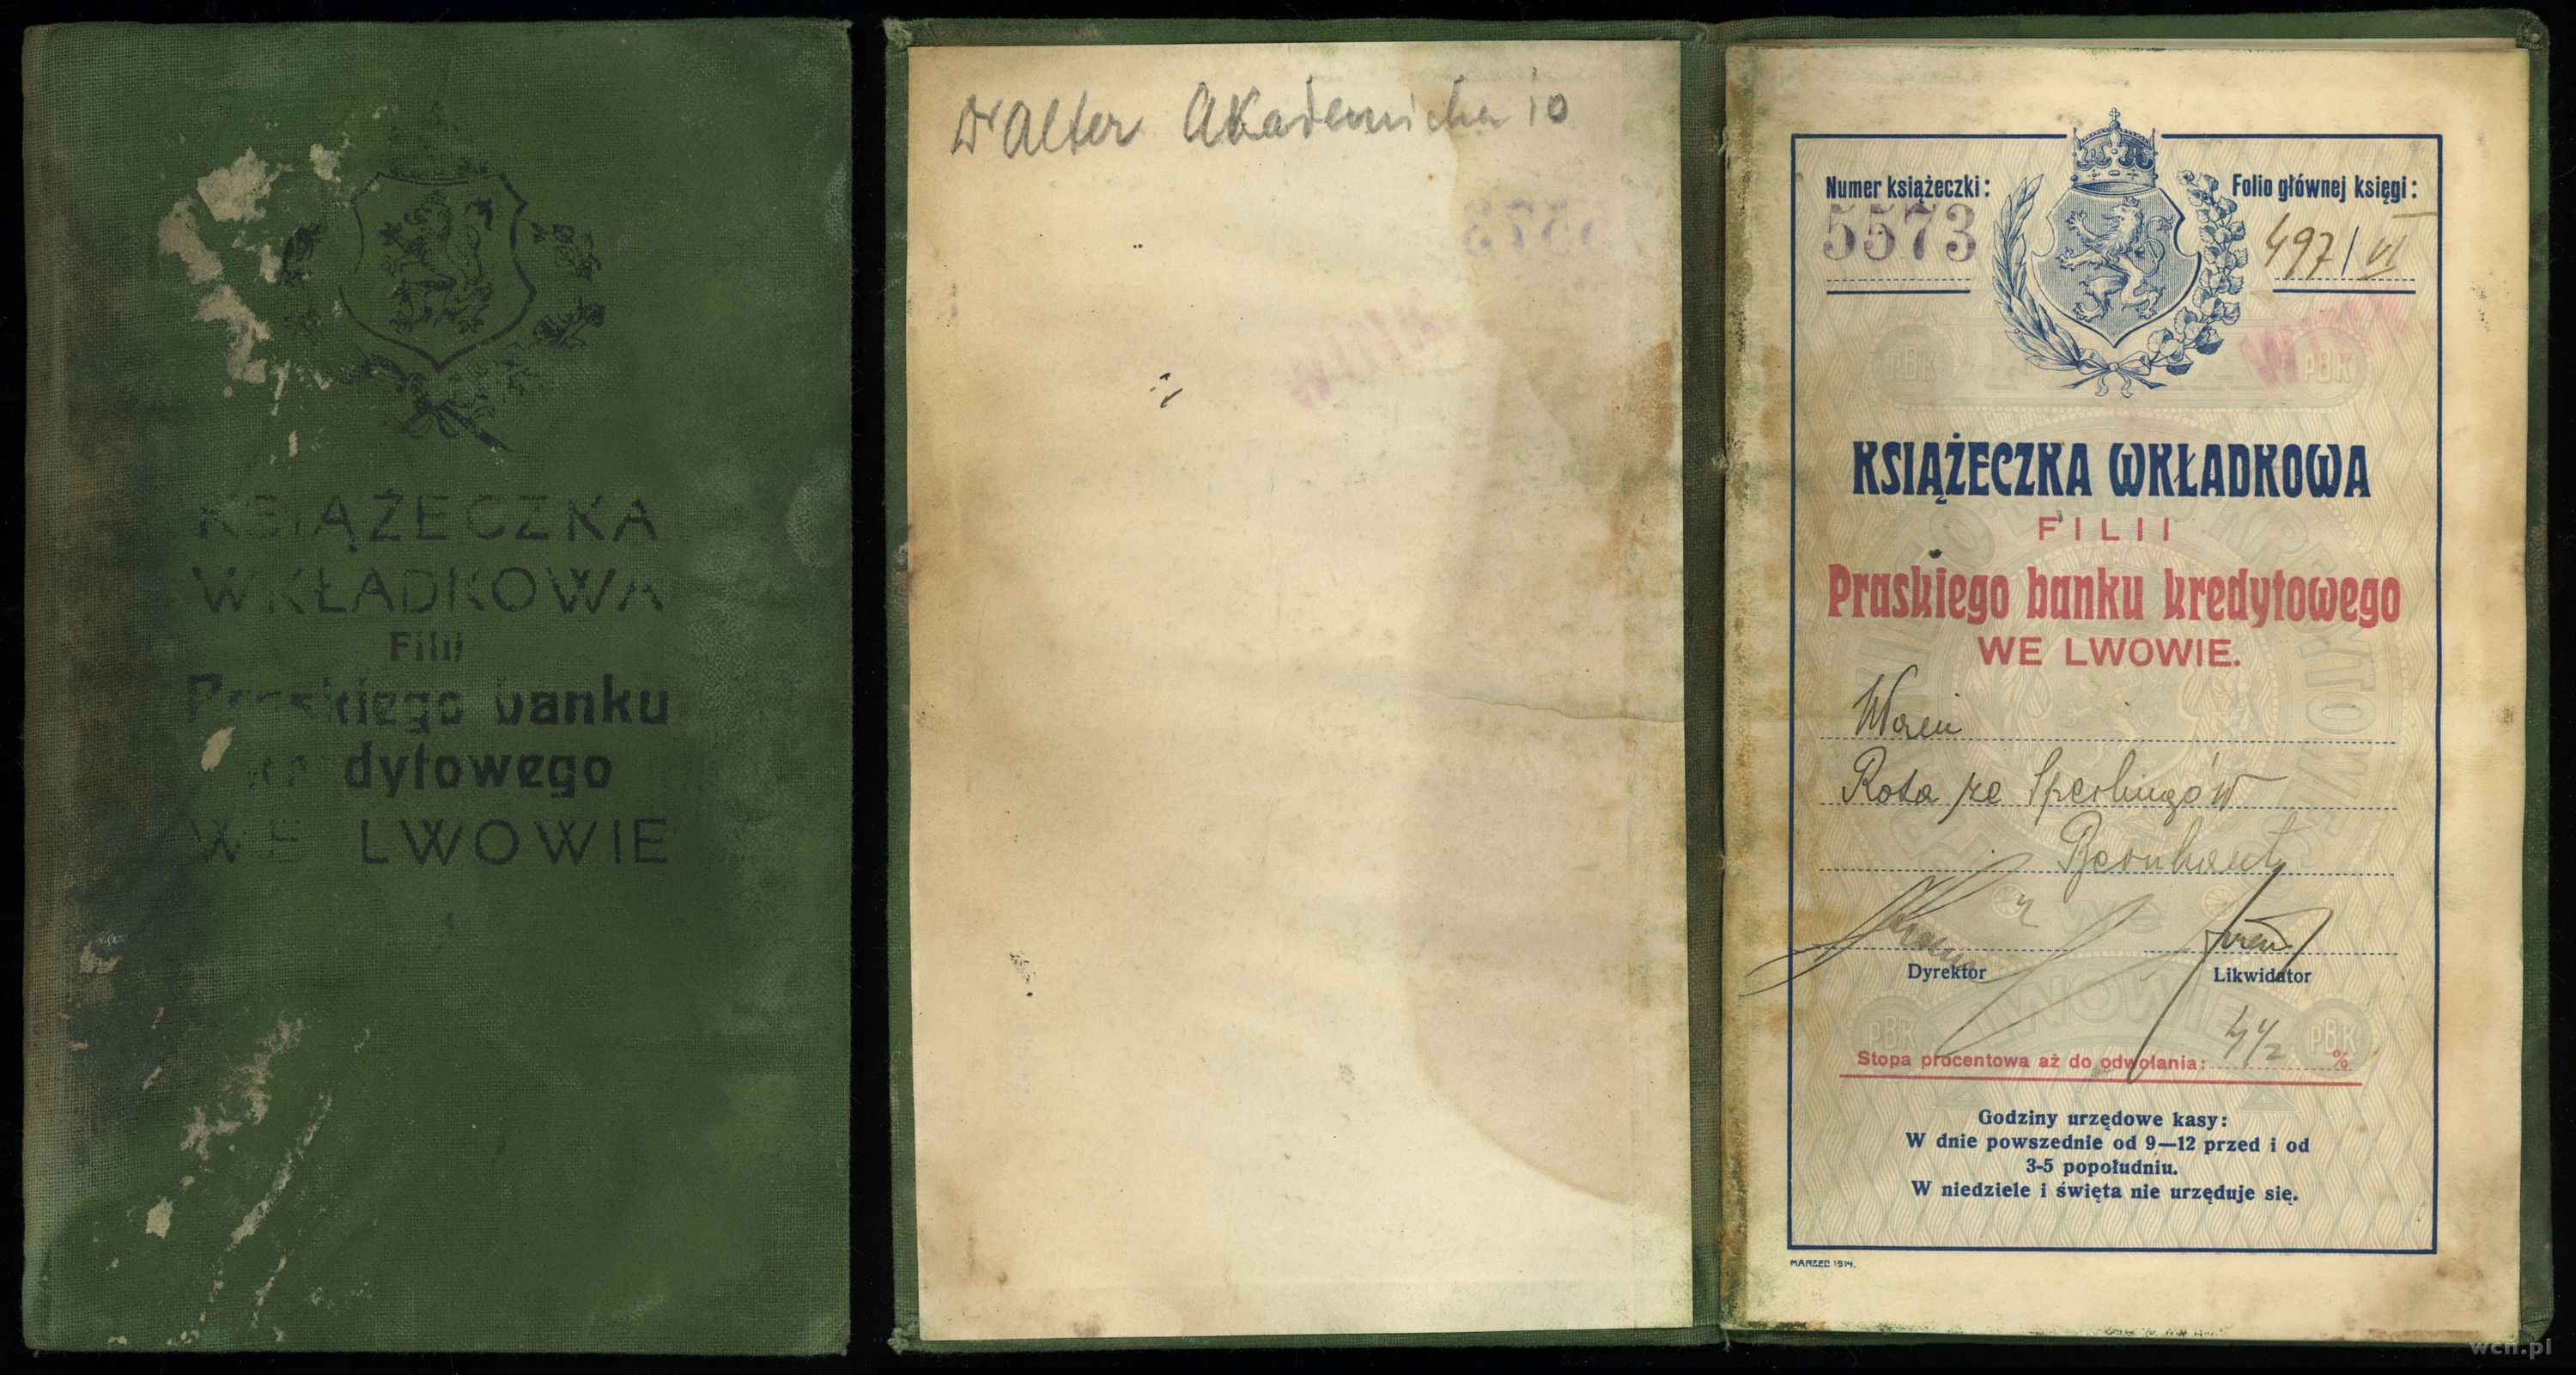 KSIĄŻECZKA
WKŁADKOWA
Filii
Praskiego banku
dytowego
WE LWOWIE
Dr Alter Akademicka 10
Numer książeczki:
5573
Folio głównej księgi:
497/VI
KSIĄŻECZKA WKŁADKOWA
FILII
Praskiego banku kredytowego
WE LWOWIE.
Rosa ze Sperlingów
Dyrektor
Likwidator
Stopa procentowa aż do odwołania: 4 1/2 %
Godziny urzędowe kasy:
W dnie powszednie od 9—12 przed i od
3-5 popołudniu.
W niedziele i święta nie urzęduje się.
MARZEC 1914.
wcn.pl